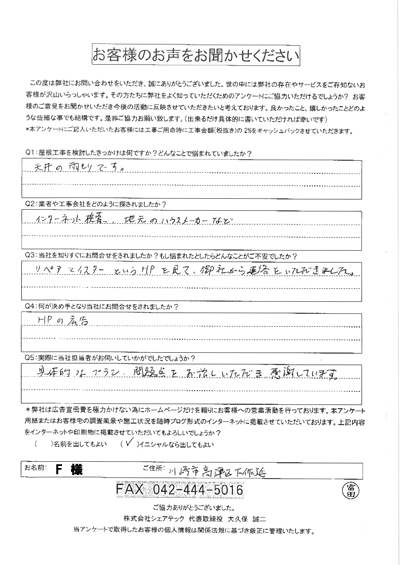 お客様のお声をお聞かせください
この度は弊社にお問い合わせをいただき、誠にありがとうございました。世の中には弊社の存在やサービスをご存知ないお
客様が沢山いらっしゃいます。その方たちに弊社をよく知っていただくためのアンケートにご協力いただけるでしょうか? お客
様のご意見をお聞かせいただき今後の活動に反映させていただきたいと考えております。良かったこと、嬉しかったことどのよ
うな些細な事でも結構です。是非ご協力お願い致します。(出来るだけ具体的に書いていただければ幸いです)
*本アンケートにご記入いただいたお客様には工事ご用命時に工事金額(税抜き)の2%をキャッシュバックさせていただきます。
Q1:屋根工事を検討したきっかけは何ですか?どんなことで悩まれていましたか?
天井の雨もりです。
Q2:業者や工事会社をどのように探されましたか?
インターネット検索、地元のハウスメーカーなど
Q3:当社を知りすぐにお問合せをされましたか?もし悩まれたとしたらどんなことがご不安でしたか?
リペアマイスターというHPを見て、御社から連絡をいただきました。
Q4:何が決め手となり当社にお問合せをされましたか?
HPの広告
Q5:実際に当社担当者がお伺いしていかがでしたでしょうか?
具体的なプラン、問題点をお話しいただき感謝しています。
*弊社は広告宣伝費を極力かけない為にホームページだけを頼りにお客様への営業活動を行っております。本アンケート
用紙またはお客様宅の調査風景や施工状況を随時ブログ形式のインターネットに掲載させていただいております。上記内容
をインターネットや印刷物に掲載させていただいてもよろしいでしょうか?
( )名前を出してもよい (✓)イニシャルなら出してもよい
お名前: F 様 ご住所: 川崎市高津区下作延
FAX 042-444-5016
富田
ご協力ありがとうございました。
株式会社シェアテック 代表取締役 大久保 誠二
当アンケートで取得したお客様の個人情報は関係法規に基づき厳正に管理いたします。